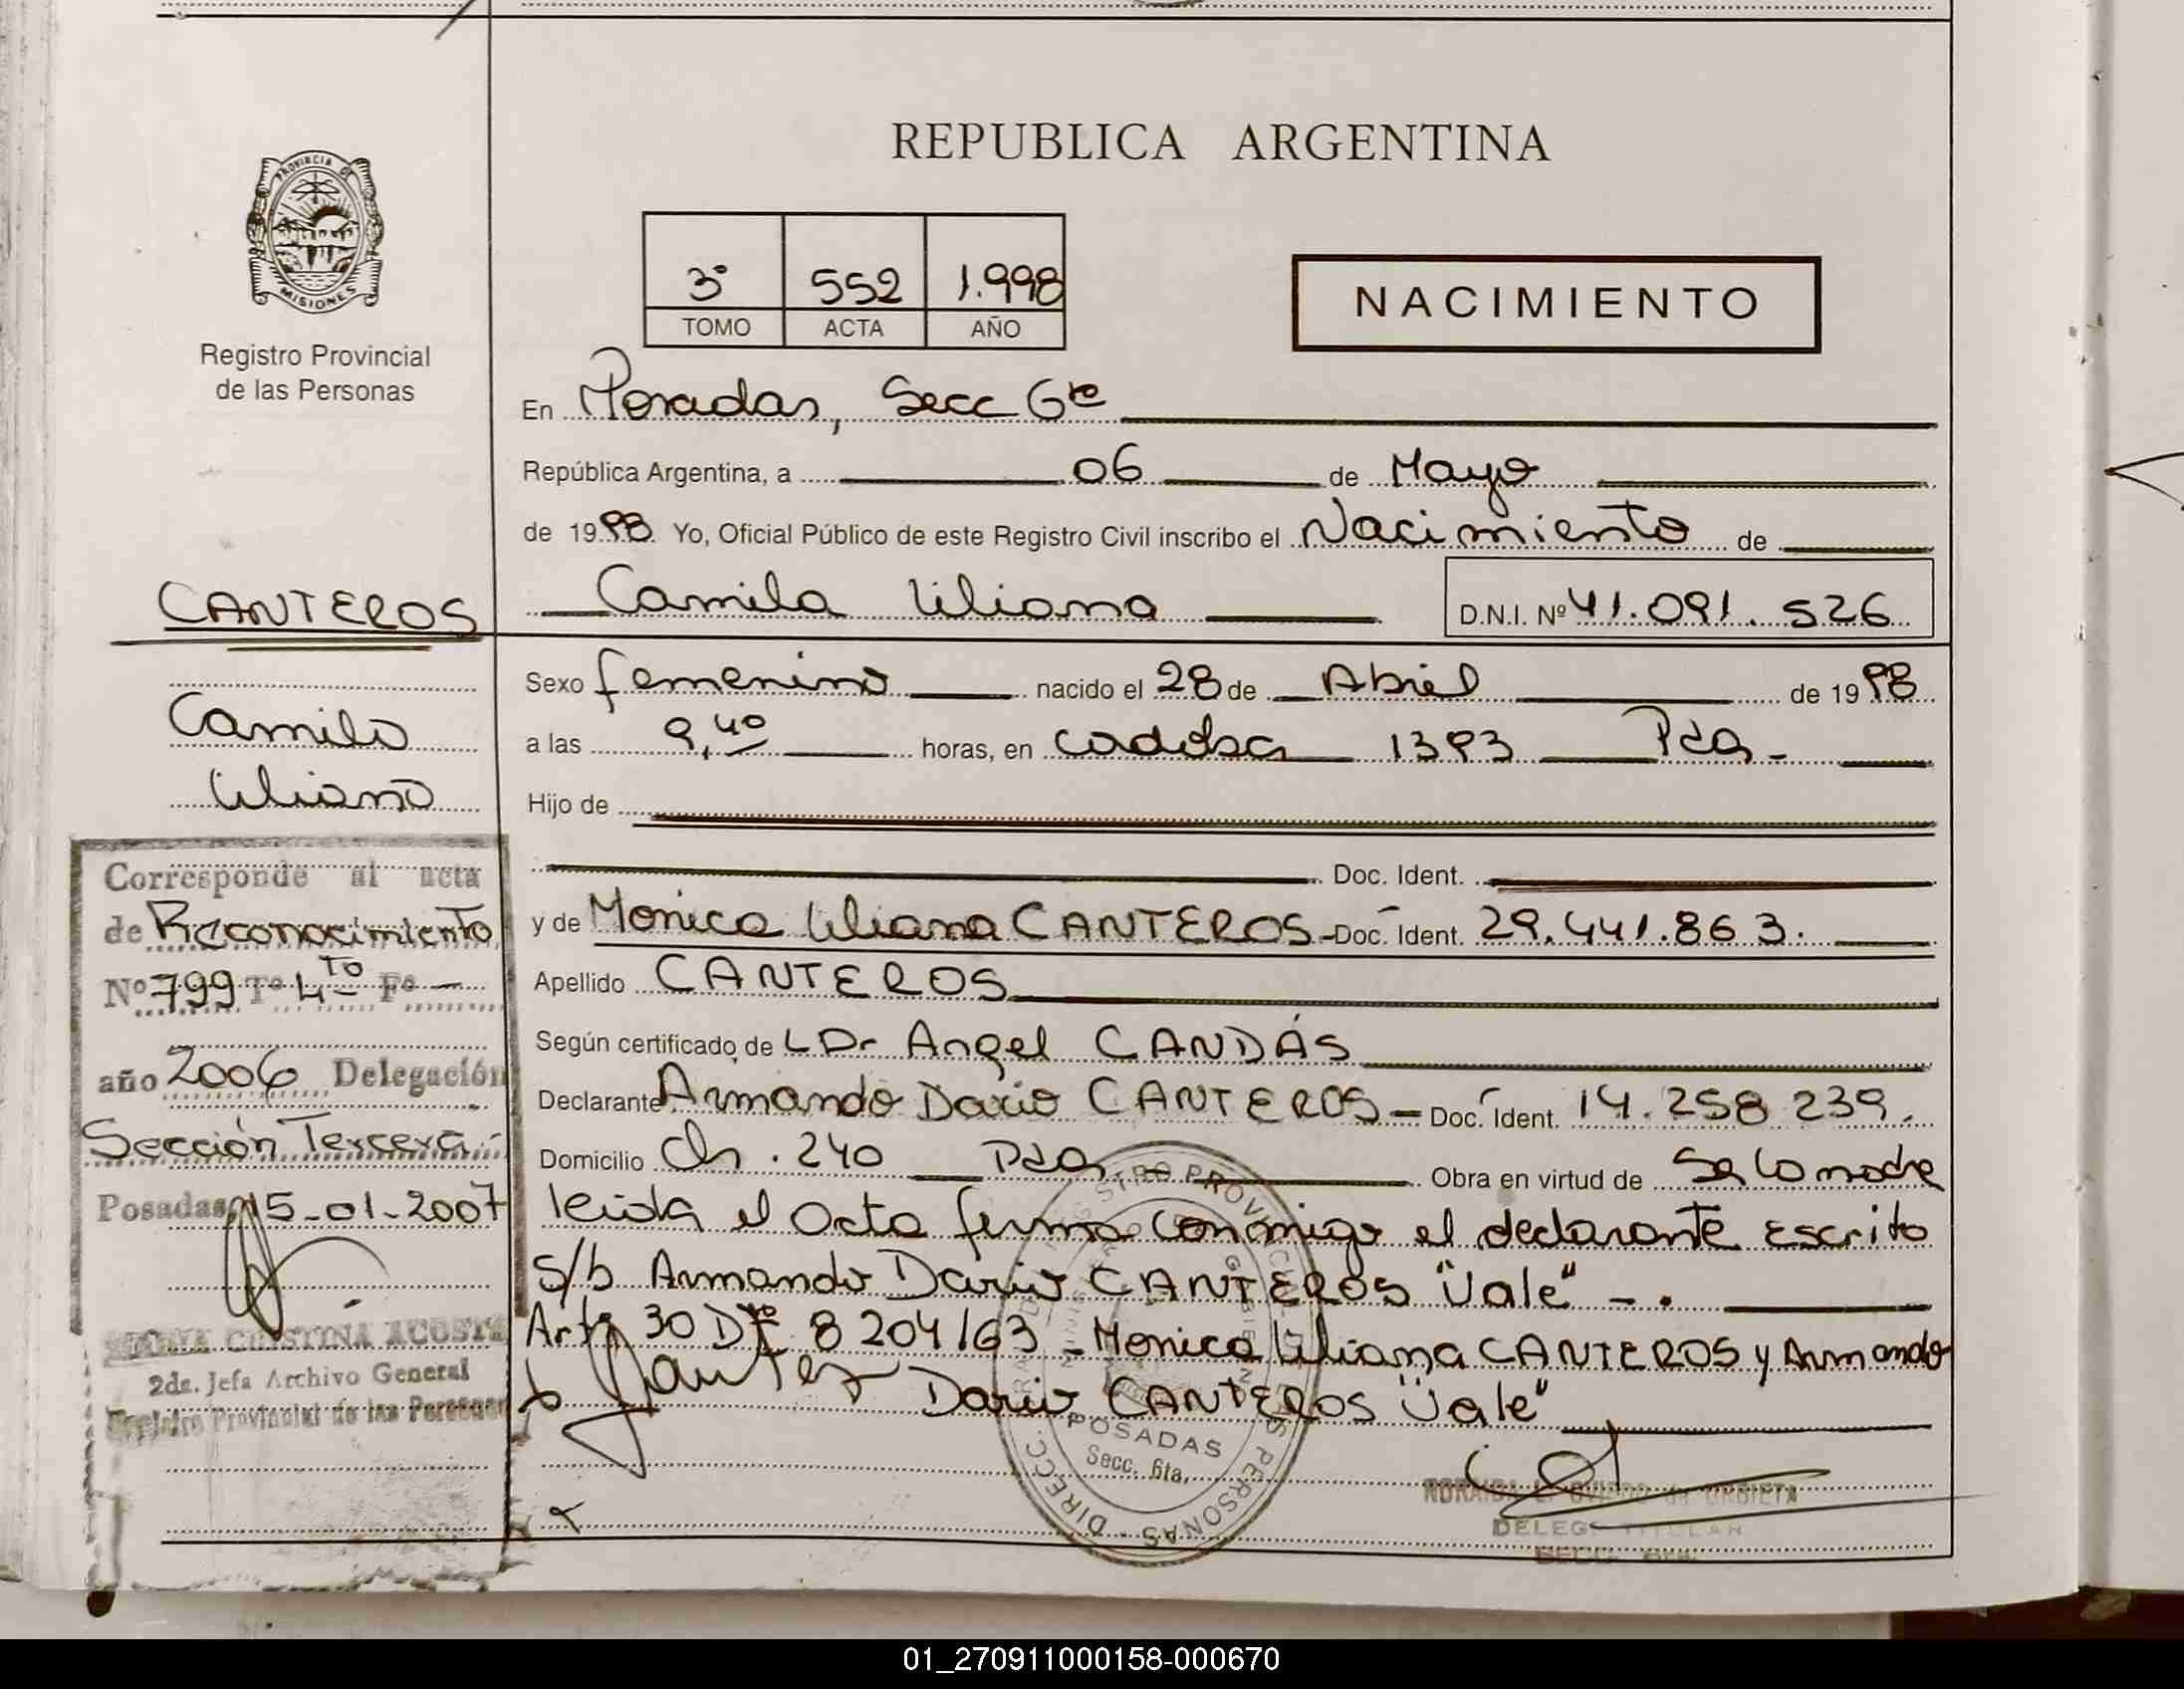 REPUBLICA ARGENTINA
PROVINCIA DE
MISIONES
Registro Provincial
de las Personas
3° 552 1.998
TOMO ACTA AÑO
NACIMIENTO
En Posadas, Secc 6ta
República Argentina, a 06 de Mayo
de 1998 Yo, Oficial Público de este Registro Civil inscribo el Nacimiento de
Camila Liliana D.N.I. Nº 41.091.526
CANTEROS
Camila
Liliana
Sexo femenino nacido el 28 de Abril de 1998
a las 9,40 horas, en 1393 Pdas-
Hijo de
Doc. Ident.
y de Monica Liliana CANTEROS- Doc. Ident. 29.441.863.
Apellido CANTEROS
Según certificado de L Dr Angel CANDÁS
Declarante Armando Dario CANTEROS- Doc. Ident. 14.258 239.
Domicilio Ch. 240 Pdas- Obra en virtud de Se la madre
leida el acta firma conmigo el declarante escrito
s/b Armando Dario CANTEROS "Vale" -.
Arto 30 Dto 8204/63 - Monica Liliana CANTEROS y Armando
Dario CANTEROS "Vale"
Corresponde al acta
de Reconocimiento
Nº 799 Tº 4to Fº -
año 2006 Delegación
Sección Tercera.-
Posadas, 15-01-2007
MARIA CRISTINA ACOSTA
2da. Jefa Archivo General
Registro Provincial de las Personas
POSADAS
Secc. 6ta.
DELEG TITULAR
SECC. 6ta.
01_270911000158-000670